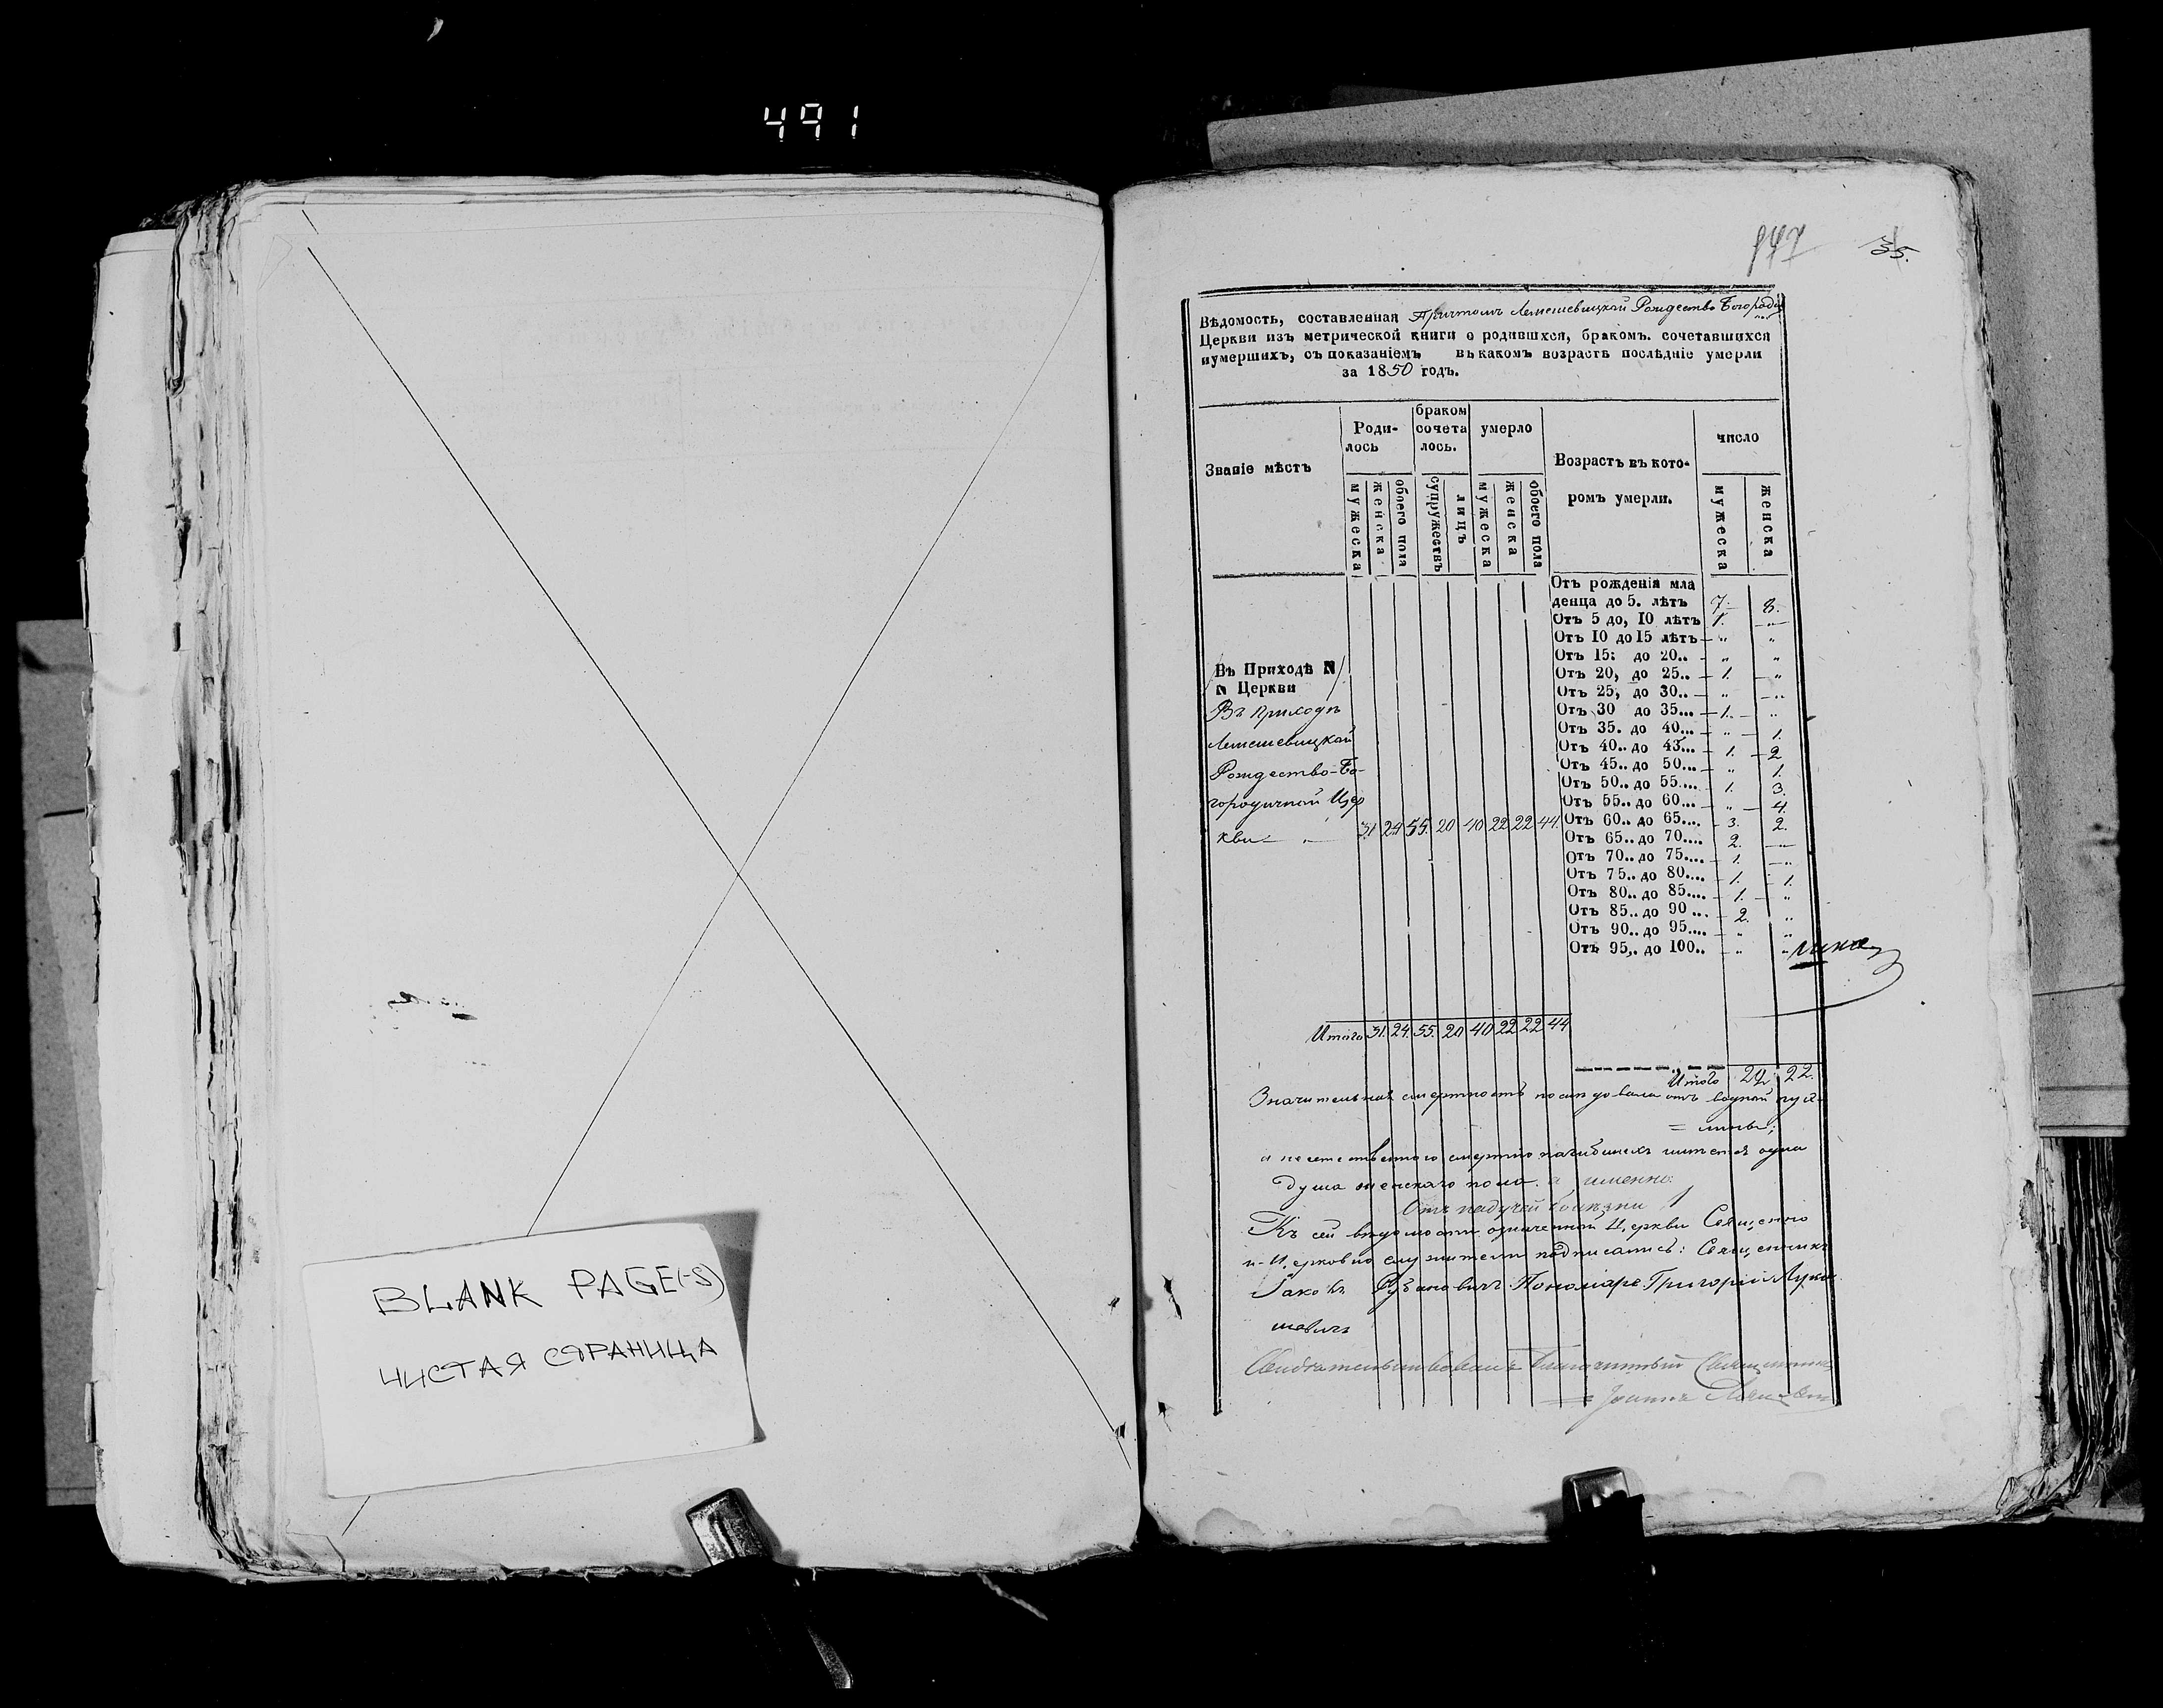 491
BLANK PAGE(-S)
ЧИСТАЯ СТРАНИЦА
947 35.
Вѣдомость, составленная Причтомъ Лемешевицкой Рождество Богород
Церкви изъ метрической книги о родившхся, бракомъ. сочетавшихся
иумершихъ, съ показаніемъ въ какомъ возрастѣ послѣдніе умерли
за 1850 годъ.
Званіе мѣстъ
Роди-
лось
браком
сочета
лось.
умерло
Возрастъ въ кото-
ромъ умерли.
число
мужеска женска обоего пола супружествъ лицъ мужеска женска обоего пола мужеска женска
Отъ рожденія мла
денца до 5. лѣтъ 7. 8.
Отъ 5 до, 10 лѣтъ 1. "
Отъ 10 до 15 лѣтъ " "
Отъ 15: до 20.. " "
Отъ 20, до 25.. 1. "
Отъ 25, до 30.. " "
Отъ 30 до 35... 1. "
Отъ 35. до 40... " 1.
Отъ 40.. до 45... 1. 2
Отъ 45.. до 50... " 1.
Отъ 50.. до 55.... 1. 3.
Отъ 55.. до 60... " 4.
Отъ 60.. до 65.... 3. 2.
Отъ 65.. до 70.... 2. "
Отъ 70.. до 75.... 1. "
Отъ 75.. до 80.... 1. 1.
Отъ 80.. до 85.... 1. "
Отъ 85.. до 90 ... 2. "
Отъ 90.. до 95.... " "
Отъ 95,. до 100.. " "
Въ Приходѣ N
N Церкви
Въ приходѣ
Лемешевицкой
Рождество-Бо-
городичной Цер
кви 31 24 55. 20 40 22 22 44.
Итого 31. 24. 55. 20 40 22 22 44
Итого 22. 22.
Значительная смертность послѣдовала отъ водной пух-
= лины;
а неестественною смертію погибшихъ чится одна
душа женскаго пола. а именно:
Отъ падучей болѣзни 1
Къ сей вѣдомости означенной Церкви Священо
и-Церковно служители подписались: Священникъ
Іаковъ Пономарь Григорій Луко
шевичъ
Свидѣтельствовалъ Благочинный Священникъ
Іоаннъ